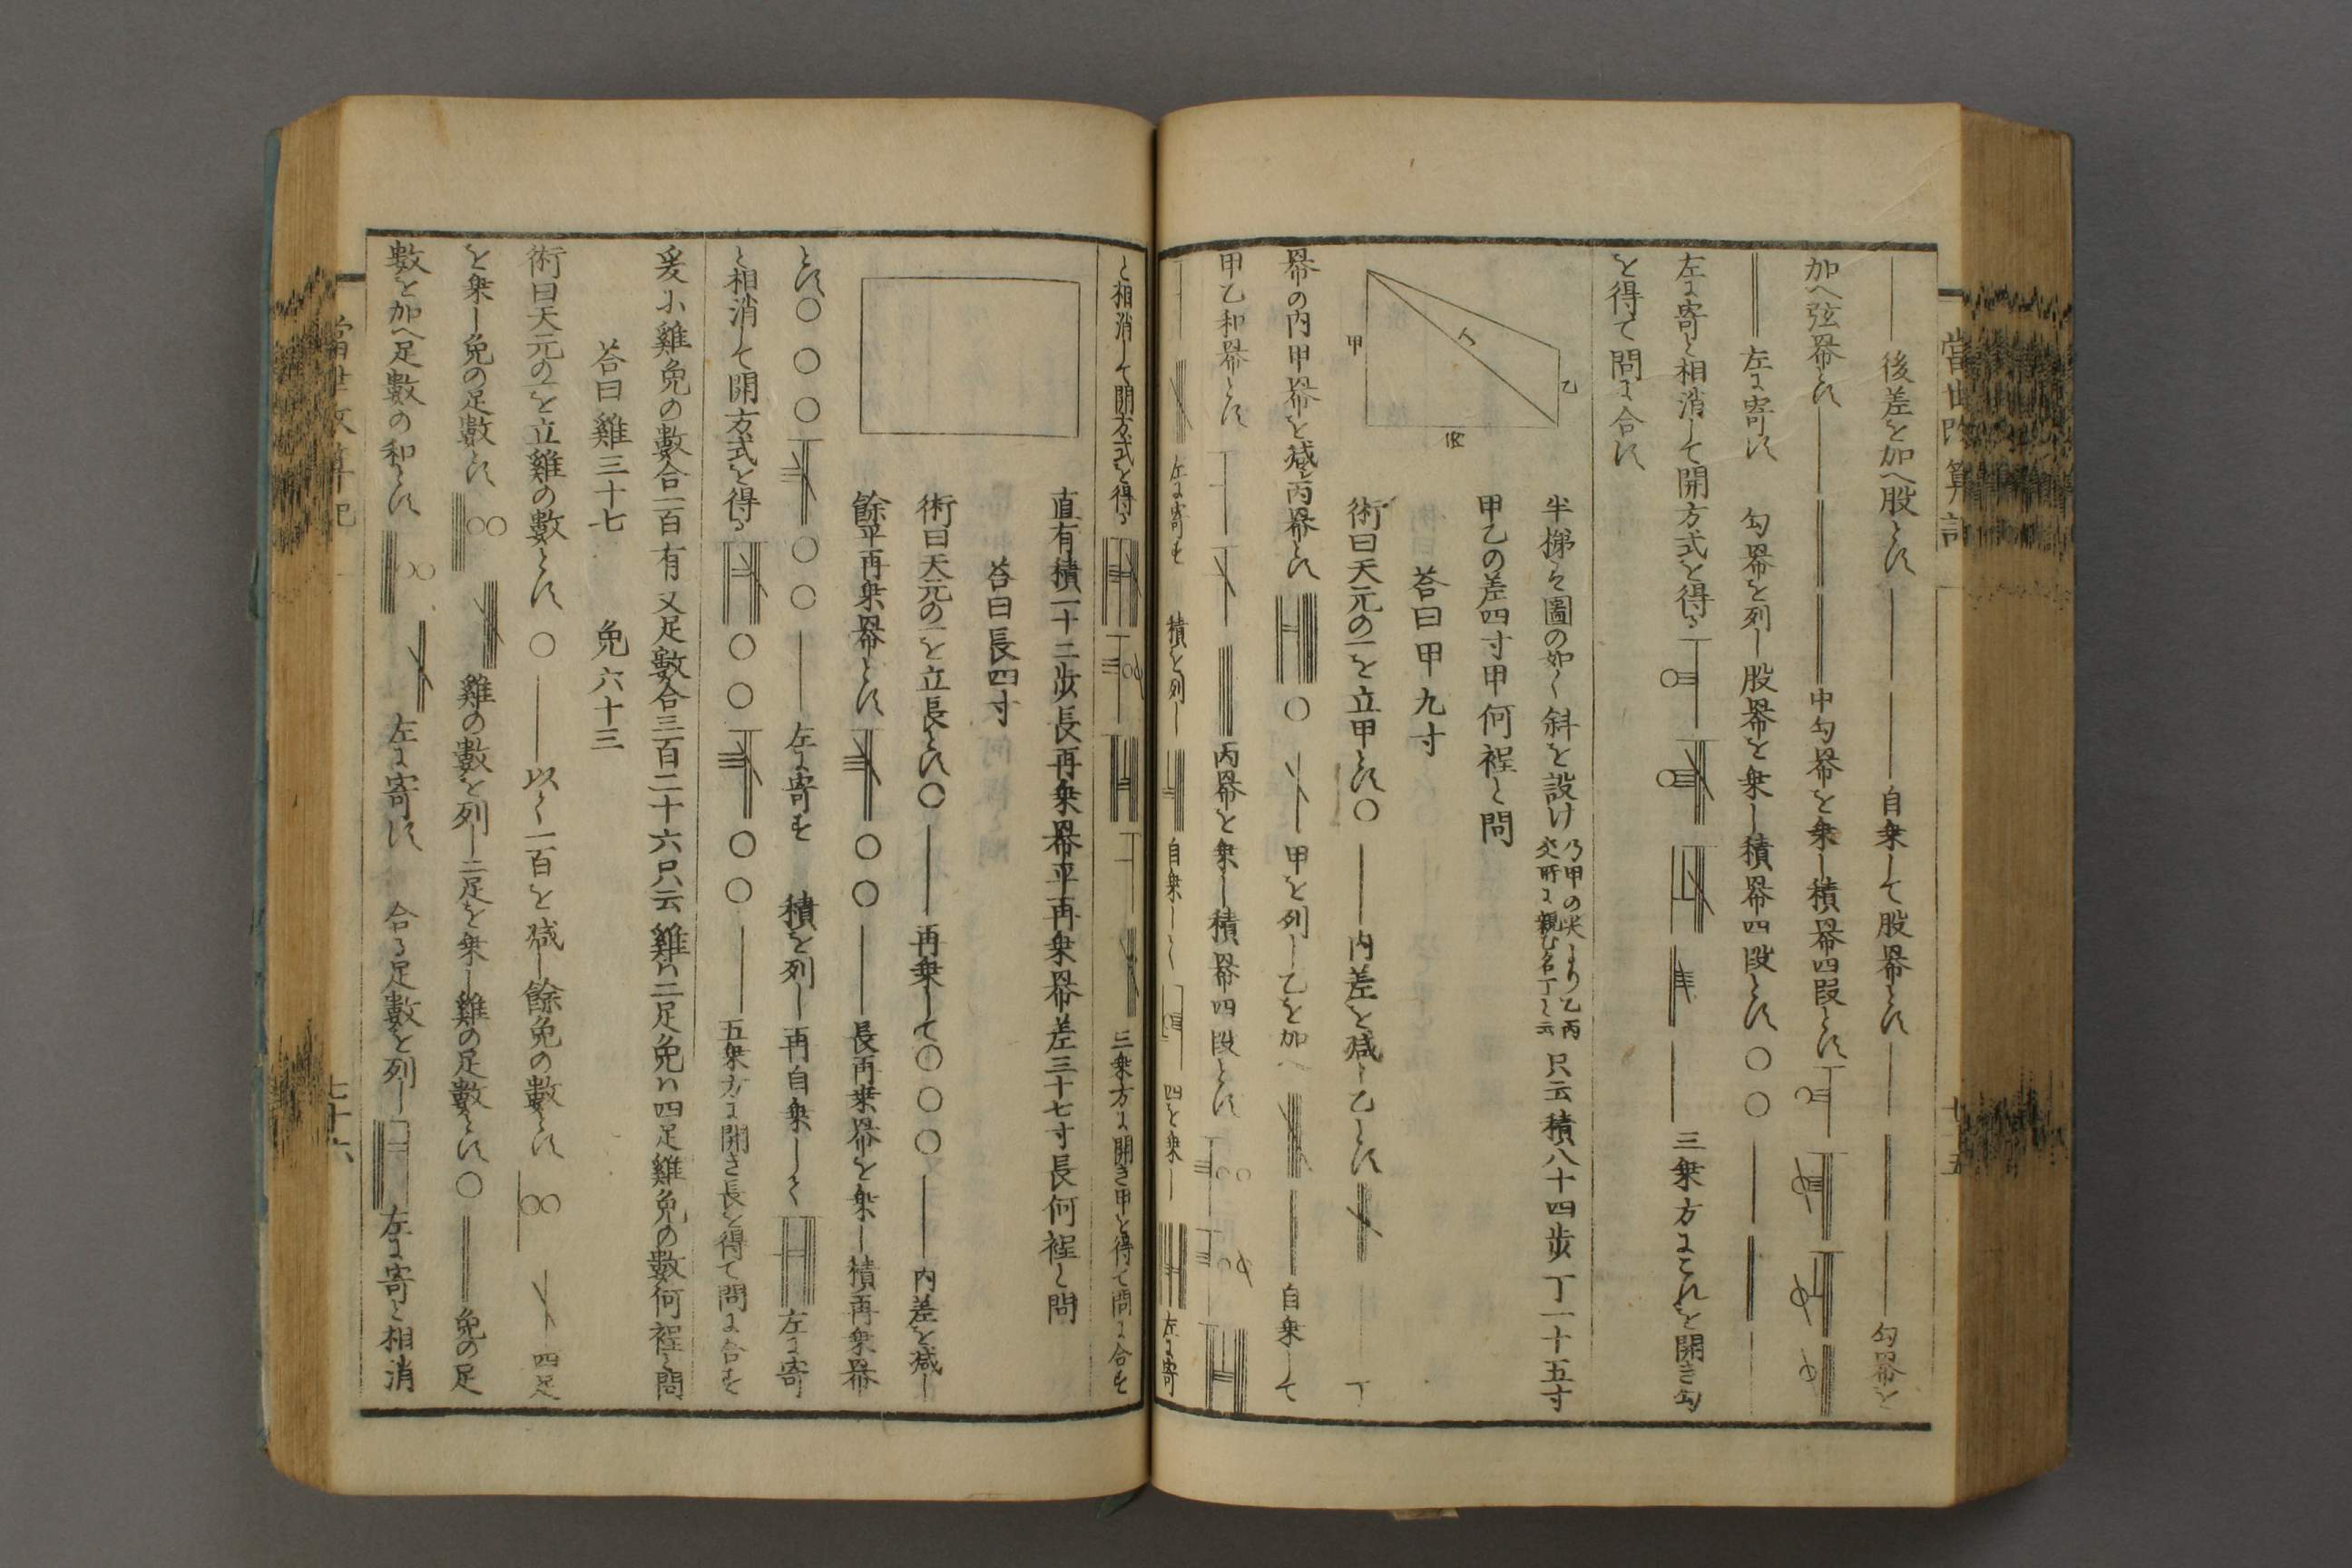 後差を加へ股とす 自乗して股冪とす 勾冪を
加へ弦冪とす 中勾冪を乗し積冪四段とす
左に寄す 勾冪を列し股冪を乗し積冪四段とす 〇〇
左に寄と相消して開方式を得る 三乗方にこれを開き勾
を得て問に合す
半梯を圖の如く斜を設け 只云積八十四歩 丁一十五寸
甲乙の差四寸甲何程と問
答曰甲九寸
甲
乙
丙
丁
術曰天元の一を立甲とす〇 内差を減し乙とす 丁
冪の内甲冪を減し丙冪とす 〇 甲を列し乙を加へ 自乗して
甲乙和冪とす 丙冪を乗し積冪四段とす
左に寄す 積を列し 自乗し 四を乗し 左に寄
と相消して開方式を得る 三乗方に開き甲を得て問に合す
直有積一十二歩長再乗冪平再乗冪差三十七寸長何程と問
答曰長四寸
術曰天元の一を立長とす〇 再乗して〇〇〇 内差を減し
餘平再乗冪とす 〇〇 長再乗冪を乗し積再乗冪
とす〇〇〇 〇〇 左に寄す 積を列し再自乗し 左に寄
と相消して開方式を得る 〇〇 〇〇 五乗方に開き長を得て問に合す
爰小雞兔の數合一百有 又足數合三百二十六只云雞ハ二足兔ハ四足雞兔の數何程と問
答曰雞三十七 兔六十三
術曰天元の一を立雞の數とす 〇 以 一百を減し餘兔の數とす 〇〇 四足
を乗し兔の足數とす 〇〇 雞の數を列し二足を乗し雞の足數とす〇 兔の足
數を加へ足數の和とす 〇〇 左に寄す 合る足數を列し 左に寄と相消
當世改算記
七十五
當世改算記
七十六